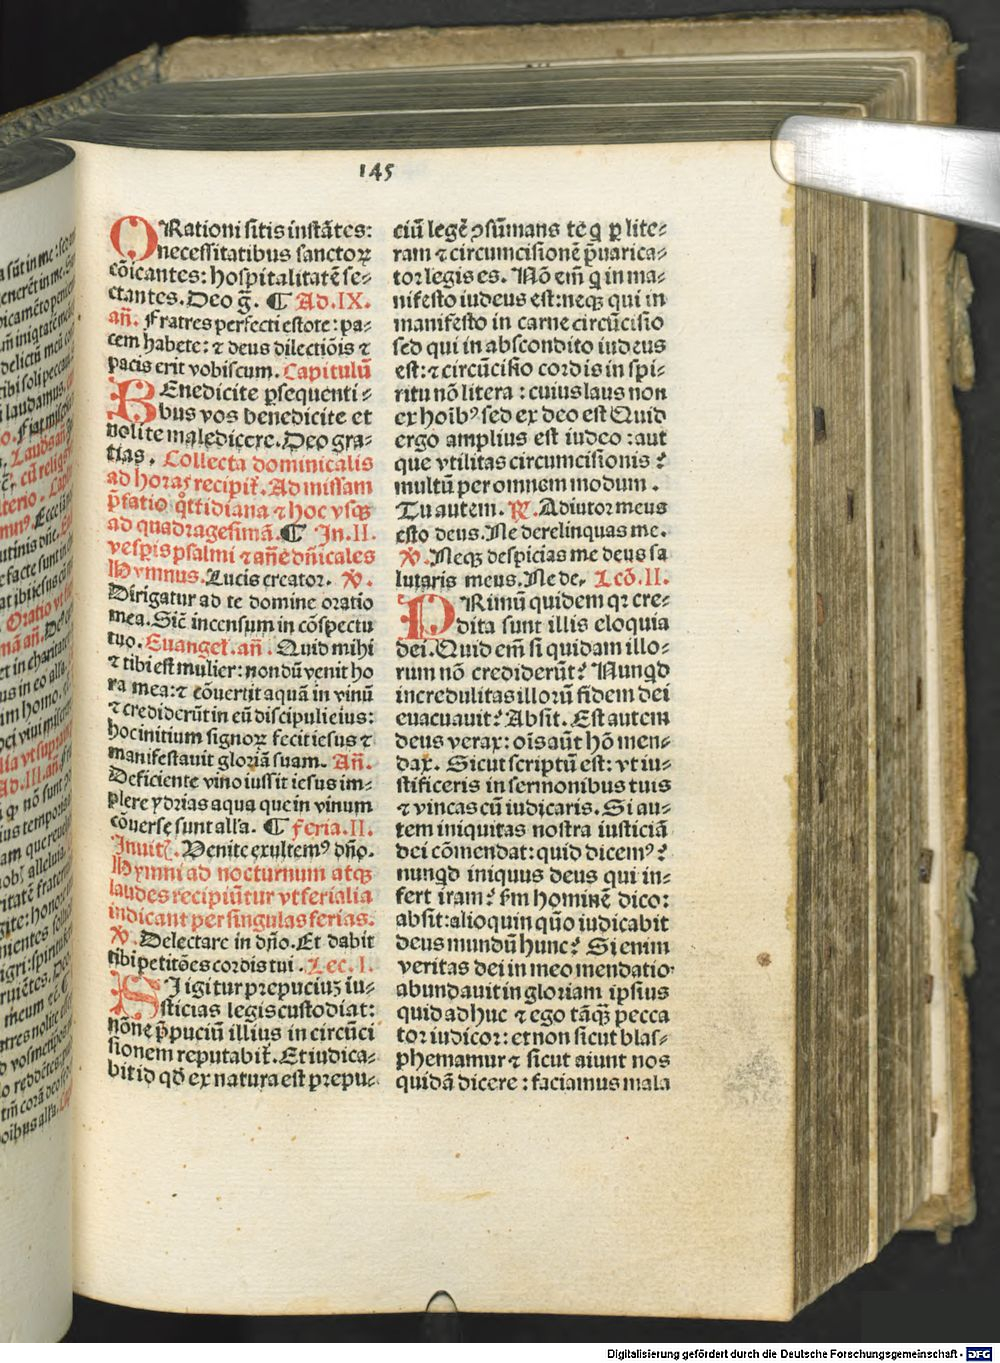 145
ORationi sitis instātes:
necessitatibus sanctoꝝ
cōicantes: hospitalitatē se⸗
ctantes. Deo g̅. ¶ Ad. IX.
añ. Fratres perfecti estote: pa⸗
cem habete: ⁊ deus dilectiōis ⁊
pacis erit vobiscum. Capitulū
BEnedicite ꝑsequenti⸗
bus vos benedicite et
nolite maledicere. Deo gra⸗
tias. Collecta dominicalis
ad horas recipit̃. Ad missam
p̃fatio q̊ttidiana ⁊ hoc vsqꝫ
ad quadragesimā. ¶ In. II.
vesꝑis psalmi ⁊ añe dñicales
Hymnus. Lucis creator. ℣.
Dirigatur ad te domine oratio
mea. Sic̃ incensum in cōspectu
tuo. Euangel̃. añ. Quid mihi
⁊ tibi est mulier: nondū venit ho
ra mea: ⁊ cōuertit aquā in vinū
⁊ crediderūt in eū discipuli eius:
hoc initium signoꝝ fecit iesus ⁊
manifestauit gloriā suam. Añ.
Deficiente vino iussit iesus im⸗
plere ydrias aqua que in vinum
cōuerse sunt alľa. ¶ Feria. II.
Inuit̃. Venite exultemꝰ dño.
Hymni ad nocturnum atqꝫ
laudes recipiūtur vt ferialia
indicant per singulas ferias.
℣. Delectare in dño. Et dabit
tibi petitōes cordis tui. Lec. I.
SI igitur prepuciuꝫ iu⸗
sticias legis custodiat:
nōne p̃puciū illius in circūci
sionem reputabit̃. Et iudica⸗
bit id qď ex natura est prepu⸗
ciū legē ꝯsūmans te q̇ ꝑ lite⸗
ram ⁊ circumcisionē p̃uarica⸗
tor legis es. Nō em̃ q̇ in ma⸗
nifesto iudeus est: neqꝫ qui in
manifesto in carne circūcisio
sed qui in abscondito iudeus
est: ⁊ circūcisio cordis in spi⸗
ritu nō litera: cuius laus non
ex hoibꝰ sed ex deo est Quid
ergo amplius est iudeo: aut
que vtilitas circumcisionis?
multū per omnem modum.
Tu autem. ℟. Adiutor meus
esto deus. Ne derelinquas me.
℣. Neqꝫ despicias me deus sa
lutaris meus. Ne de. Lcō. II.
PRimū quidem qꝛ cre⸗
dita sunt illis eloquia
dei. Quid em̃ si quidam illo⸗
rum nō crediderūt? Nunqď
incredulitas illorū fidem dei
euacuauit? Absit. Est autem
deus verax: oīs aūt hō men⸗
dax. Sicut scriptū est: vt iu⸗
stificeris in sermonibus tuis
⁊ vincas cū iudicaris. Si au⸗
tem iniquitas nostra iusticiā
dei cōmendat: quid dicemꝰ?
nunqď iniquus deus qui in⸗
fert iram? ẜm hominē dico:
absit: alioquin quō iudicabit
deus mundū hunc? Si enim
veritas dei in meo mendatio
abundauit in gloriam ipsius
quid adhuc ⁊ ego tāqꝫ pecca
tor iudicor: et non sicut blas⸗
phemamur ⁊ sicut aiunt nos
quidā dicere: faciamus mala
Digitalisierung gefördert durch die Deutsche Forschungsgemeinschaft - DFG